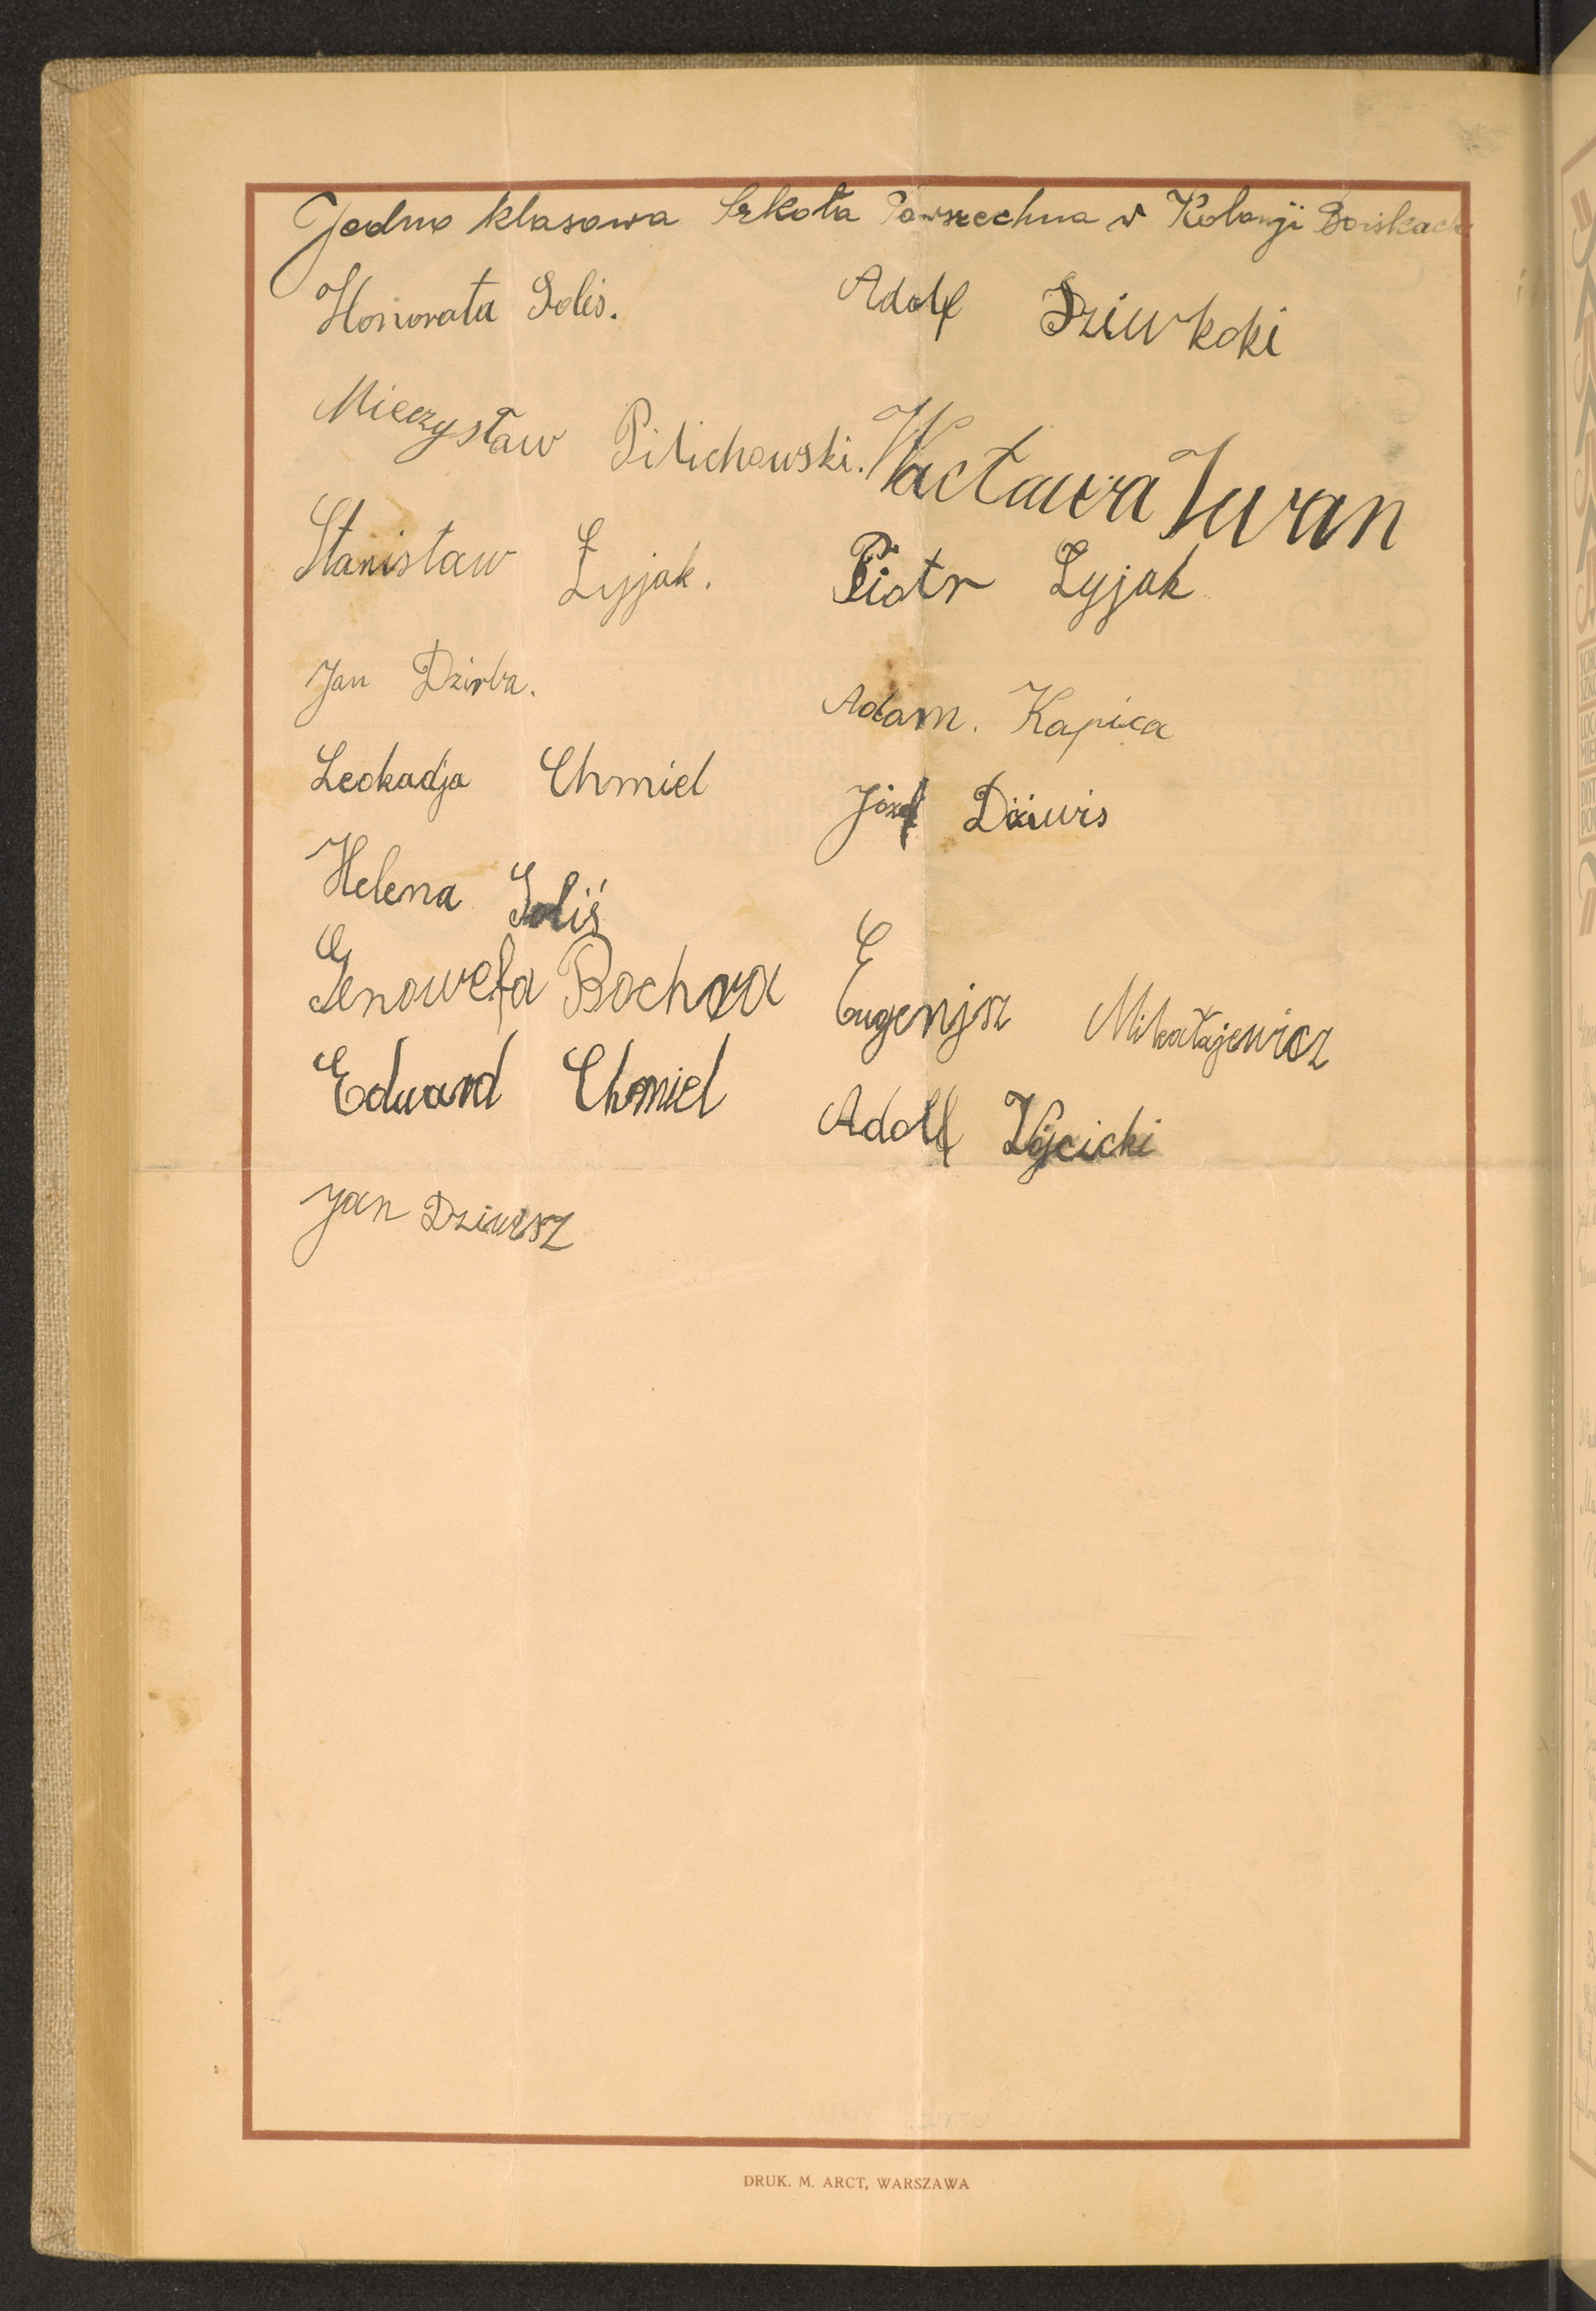 Jedno klasowa Szkoła Powszechna w Kolonji Boiskach
Honorata Golis.
Adolf Dziwkoki
Mieczysław Pilichowski.
Wacława Iwan
Stanisław Łyjak.
Piotr Łyjak
Jan Dzirba.
Adam. Kapica
Leokadja Chmiel
Józef
Helena Goliś
Genowefa Bochra
Eugenjsz Mikołajewicz
Eduard Chmiel
Adolf Wójcicki
Jan
DRUK. M. ARCT, WARSZAWA